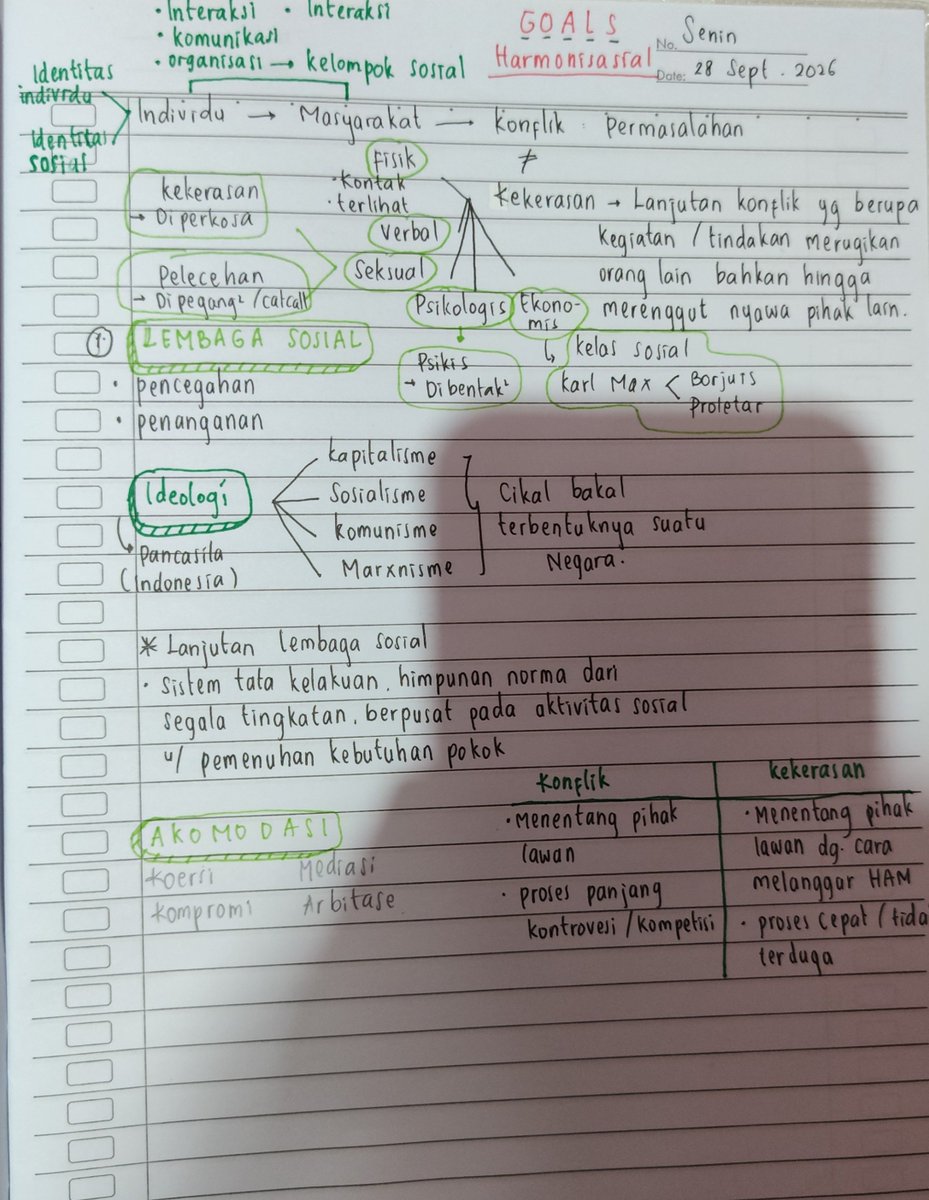 • Interaksi • Interaksi
• komunikasi
• organisasi → kelompok sosial
GOALS
Harmonisasial
No. Senin
Date: 28 Sept. 2026
Identitas
indivrdu
Identitas
sosial
Individu → Masyarakat → Konflik Permasalahan
≠
Fisik
• Kontak
• terlihat
Verbal
Seksual
Psikologis
Ekono-
mis
kekerasan
→ Diperkosa
Pelecehan
→ Dipegang² /catcall
kekerasan → Lanjutan konflik yg berupa
kegiatan / tindakan merugikan
orang lain bahkan hingga
merenggut nyawa pihak lain.
Psikis
→ Dibentak²
kelas sosial
karl Max < Borjuis
Proletar
1. LEMBAGA SOSIAL
• pencegahan
• penanganan
Ideologi
Pancasila
(Indonesia)
kapitalisme
Sosialisme
komunisme
Marxnisme
Cikal bakal
terbentuknya suatu
Negara.
* Lanjutan lembaga sosial
• Sistem tata kelakuan, himpunan norma dari
segala tingkatan, berpusat pada aktivitas sosial
u/ pemenuhan kebutuhan pokok
AKOMODASI
Koersi Mediasi
Kompromi Arbitase
Konflik
• Menentang pihak
lawan
• proses panjang
kontrovesi / kompetisi
kekerasan
• Menentang pihak
lawan dg. cara
melanggar HAM
• proses cepat / tida
terduga